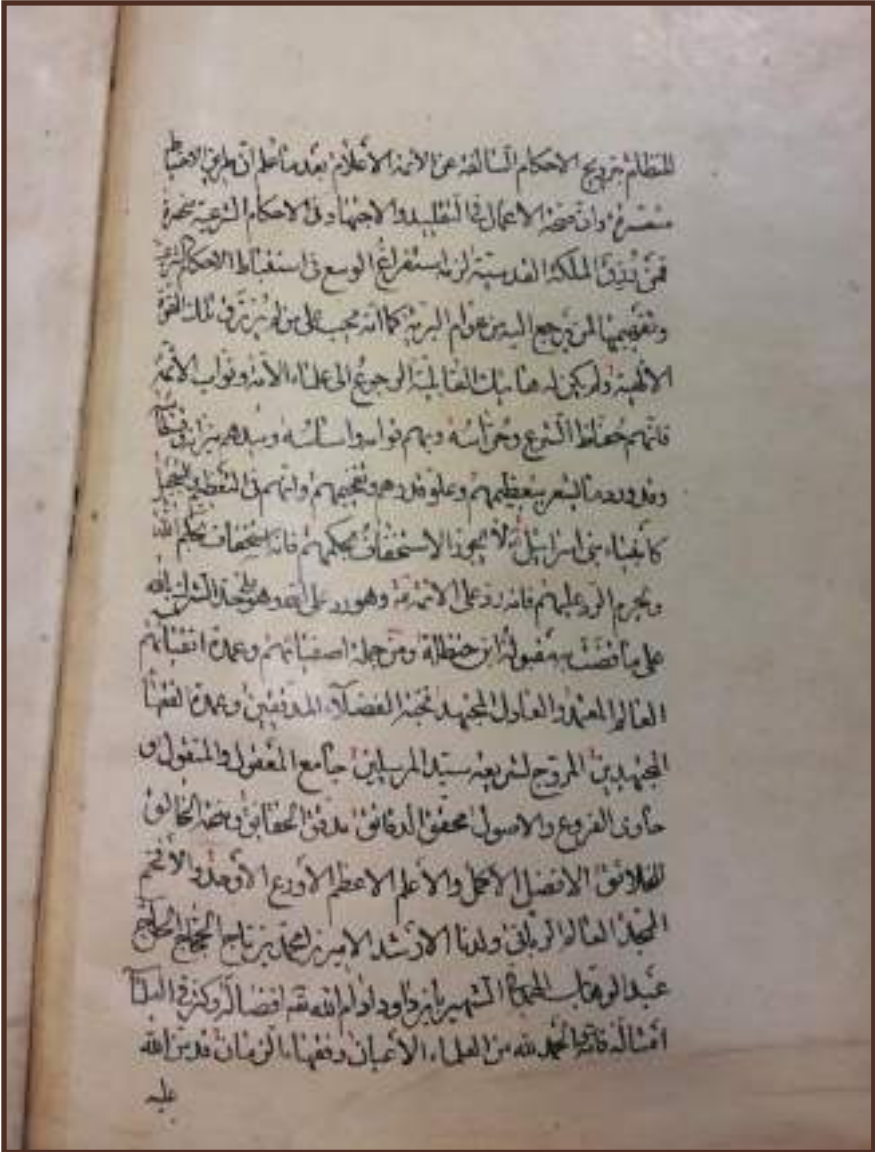 المتظلم بترويج الاحكام السالفة عن الأئمة الأعلام بعد ما علم ان طريق الاحتياط
متعسرة وان صحة الاعمال في التقليد والاجتهاد في الاحكام الشرعية منحصرة
فمن رزق الملكة القدسية لزمه استفراغ الوسع في استنباط الاحكام الشرعية
وتفهيمها لمن يرجع اليه من عوام البرية كما انه يجب على من لم يرزق تلك القوة
الالهية ولم يكن له هنا تلك القابلية الرجوع الى علماء الأمة ونواب الأئمة
فانهم حفاظ الشرع وحراسه وبهم قوامه واساسه وبيدهم ميزانه
وقد ورد ما يشعر بتعظيمهم وعلو قدرهم وتفخيمهم وانهم في التعظيم والتبجيل
كانبياء بني اسرائيل لا يجوز الاستخفاف بحكمهم فانه استخفاف بحكم الله
ويحرم الرد عليهم فانه رد على الائمة وهو رد على الله وهو على حد الشرك بالله
على ما قضت به مقبولة ابن حنظلة ومن جملة اصفيائهم وعمدة اتقيائهم
العالم المعتمد والعادل المجتهد نخبة الفضلاء المدققين وعمدة الفقهاء
المجتهدين المروج لشريعة سيد المرسلين جامع المعقول والمنقول و
حاوى الفروع والاصول محقق الدقائق مدقق الحقايق وحجة الخالق
للخلائق الافضل الاكمل والاعلم الاعظم الأورع الأوحد والأفخم
المجد العالم الرباني ولدنا الارشد الاميرزا محمد بن تاج الحجاج الحاج
عبد الوهاب الهمداني الشهير بابن داود ادام الله تعه افضاله وكثر في البلاد
امثاله فانه والحمد لله من العلماء الأعيان وفقهاء الزمان قد من الله
عليه